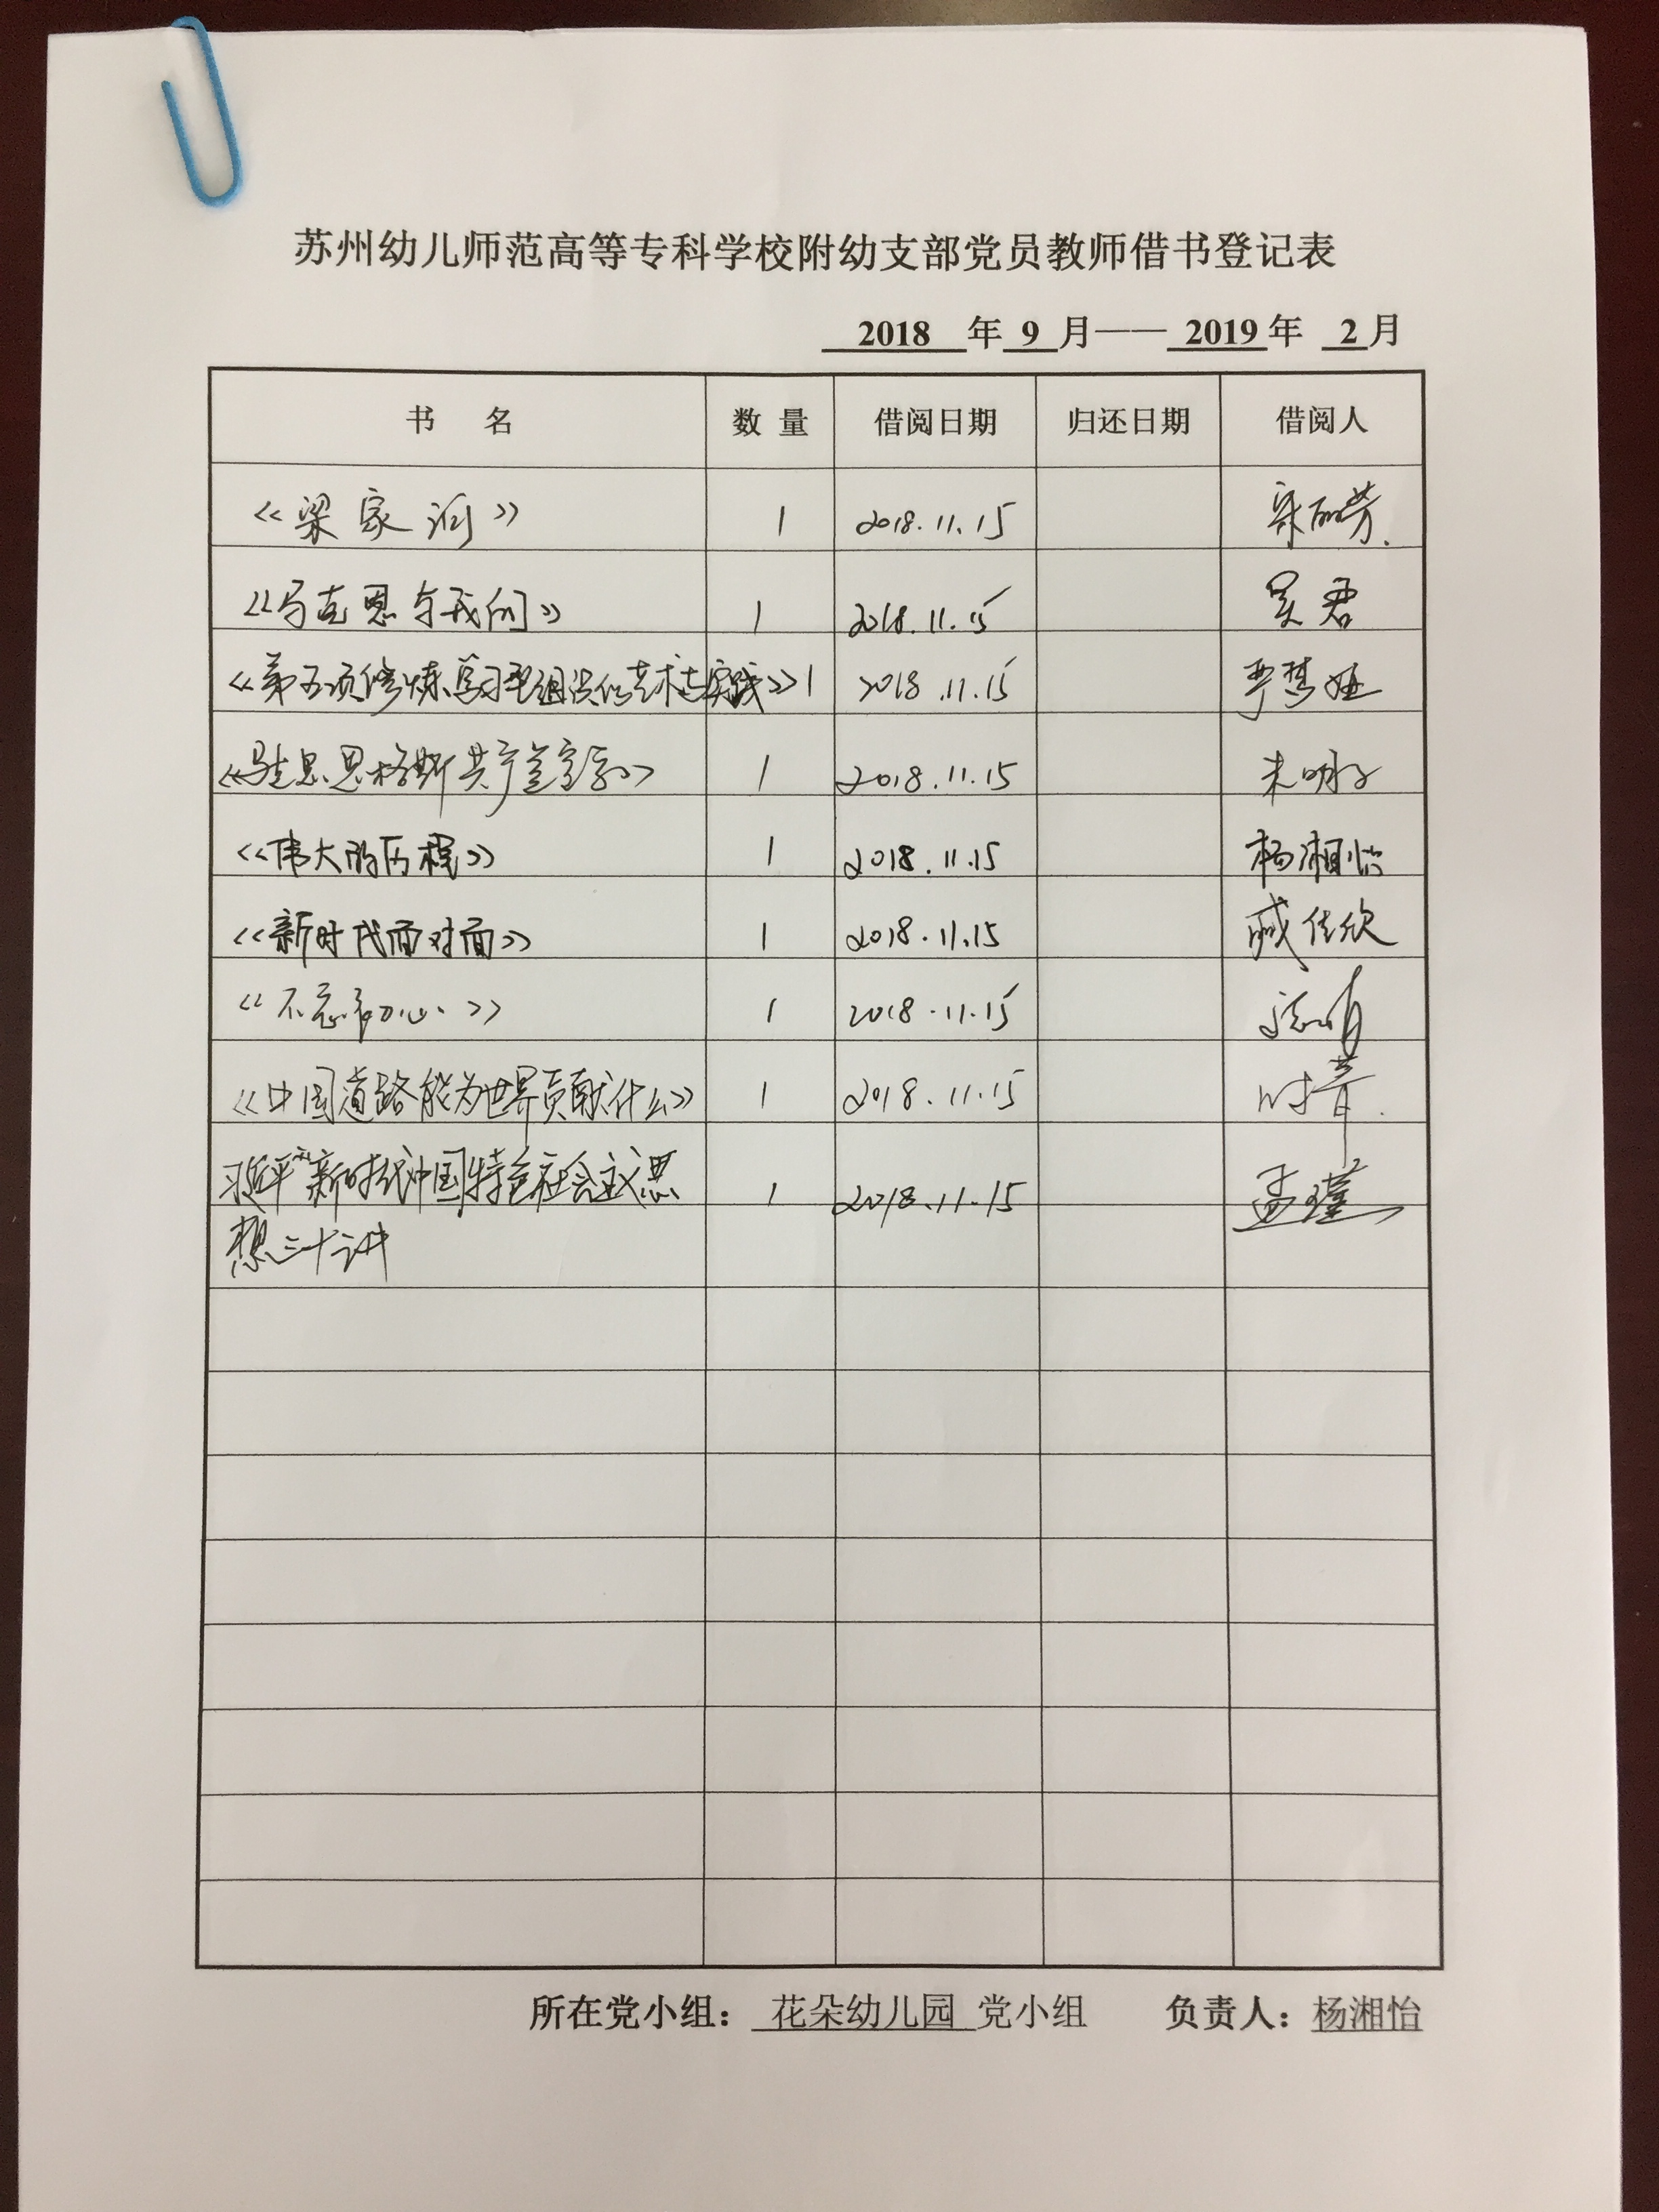 苏州幼儿师范高等专科学校附幼支部党员教师借书登记表
2018 年 9 月—— 2019 年 2 月
书 名 数 量 借阅日期 归还日期 借阅人
《梁家河》 1 2018.11.15
《马克思与我们》 1 2018.11.15 吴君
《第五项修炼:学习型组织的艺术与实践》 1 2018.11.15 严梦娅
《马克思恩格斯共产党宣言》 1 2018.11.15
《伟大的历程》 1 2018.11.15 杨湘怡
《新时代面对面》 1 2018.11.15 戚佳欣
《不忘初心》 1 2018.11.15
《中国道路能为世界贡献什么》 1 2018.11.15 时菁
习近平新时代中国特色社会主义思 1 2018.11.15 孟瑾
想三十讲
所在党小组： 花朵幼儿园 党小组 负责人：杨湘怡